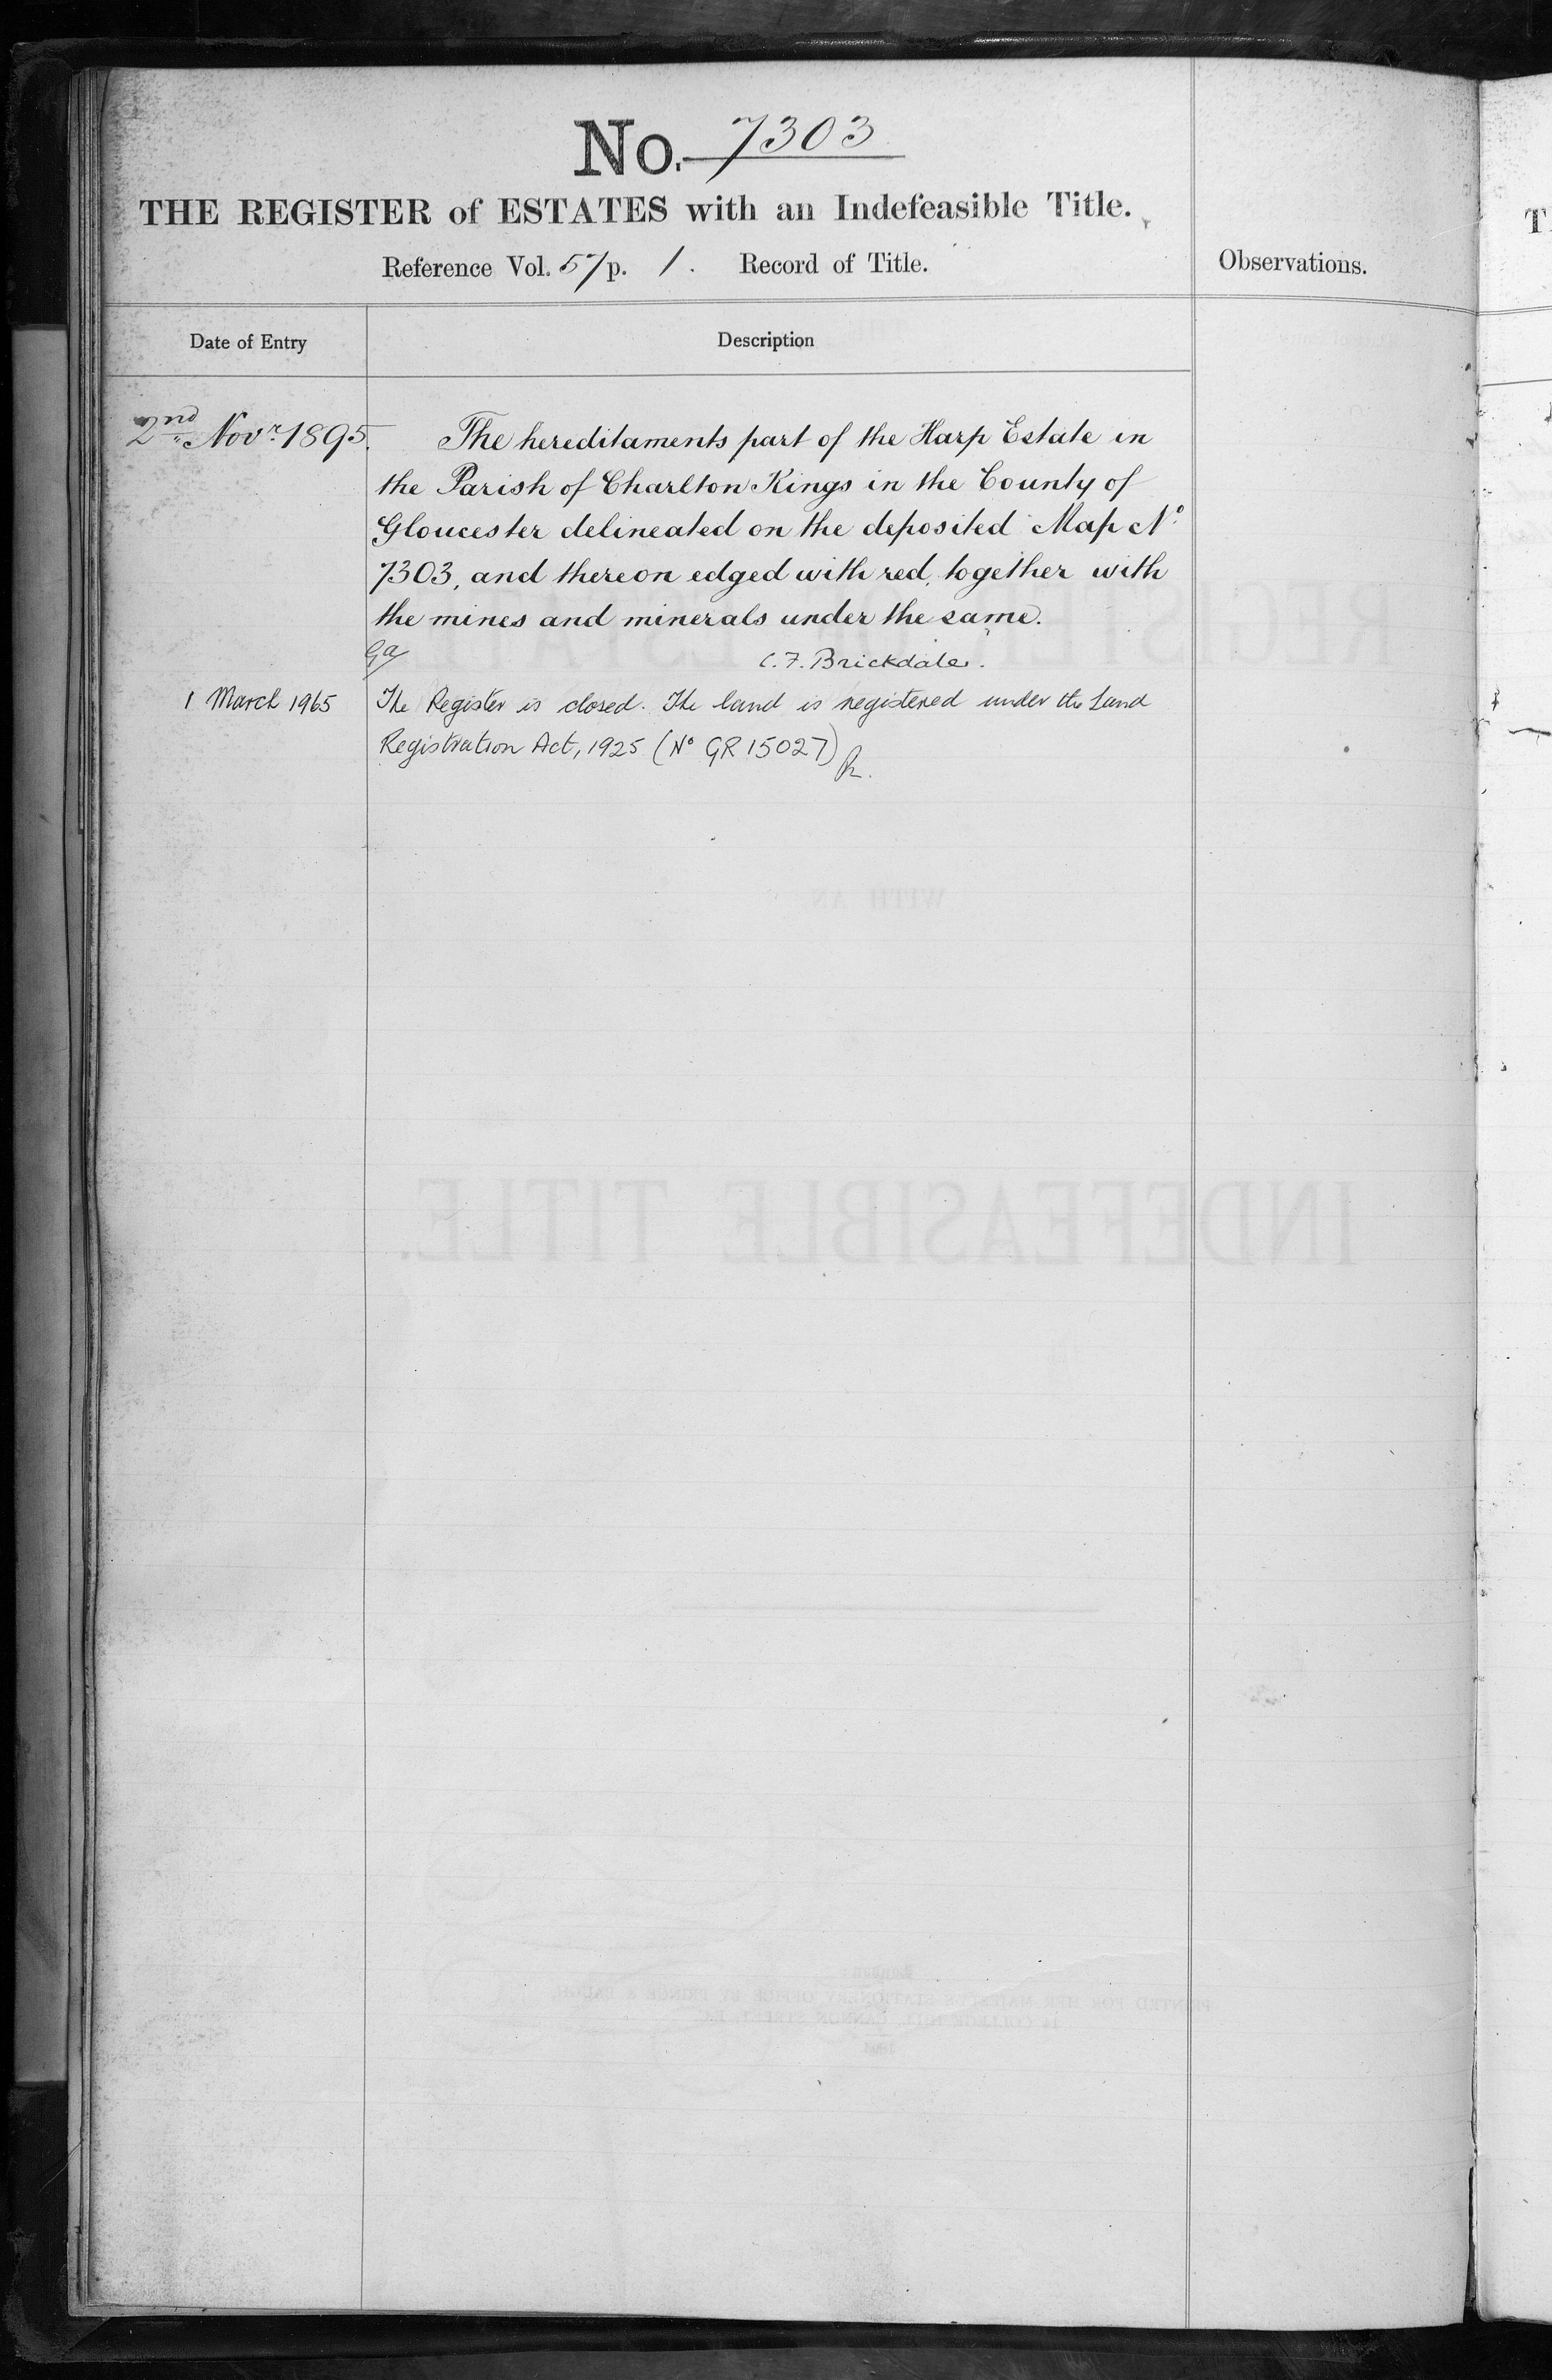 No. 7303
THE REGISTER of ESTATES with an Indefeasible Title.
Reference Vol. 57 p. 1. Record of Title.
Observations.
Date of Entry
Description
2nd Novr. 1895.
The hereditaments part of the Harp Estate in
the Parish of Charlton Kings in the County of
Gloucester delineated on the deposited Map No.
7303, and thereon edged with red, together with
the mines and minerals under the same.
C. F. Brickdale.
1 March 1965
The Register is closed. The land is registered under the Land
Registration Act, 1925 (No GR 15027)
WITH AN
INDEFEASIBLE TITLE.